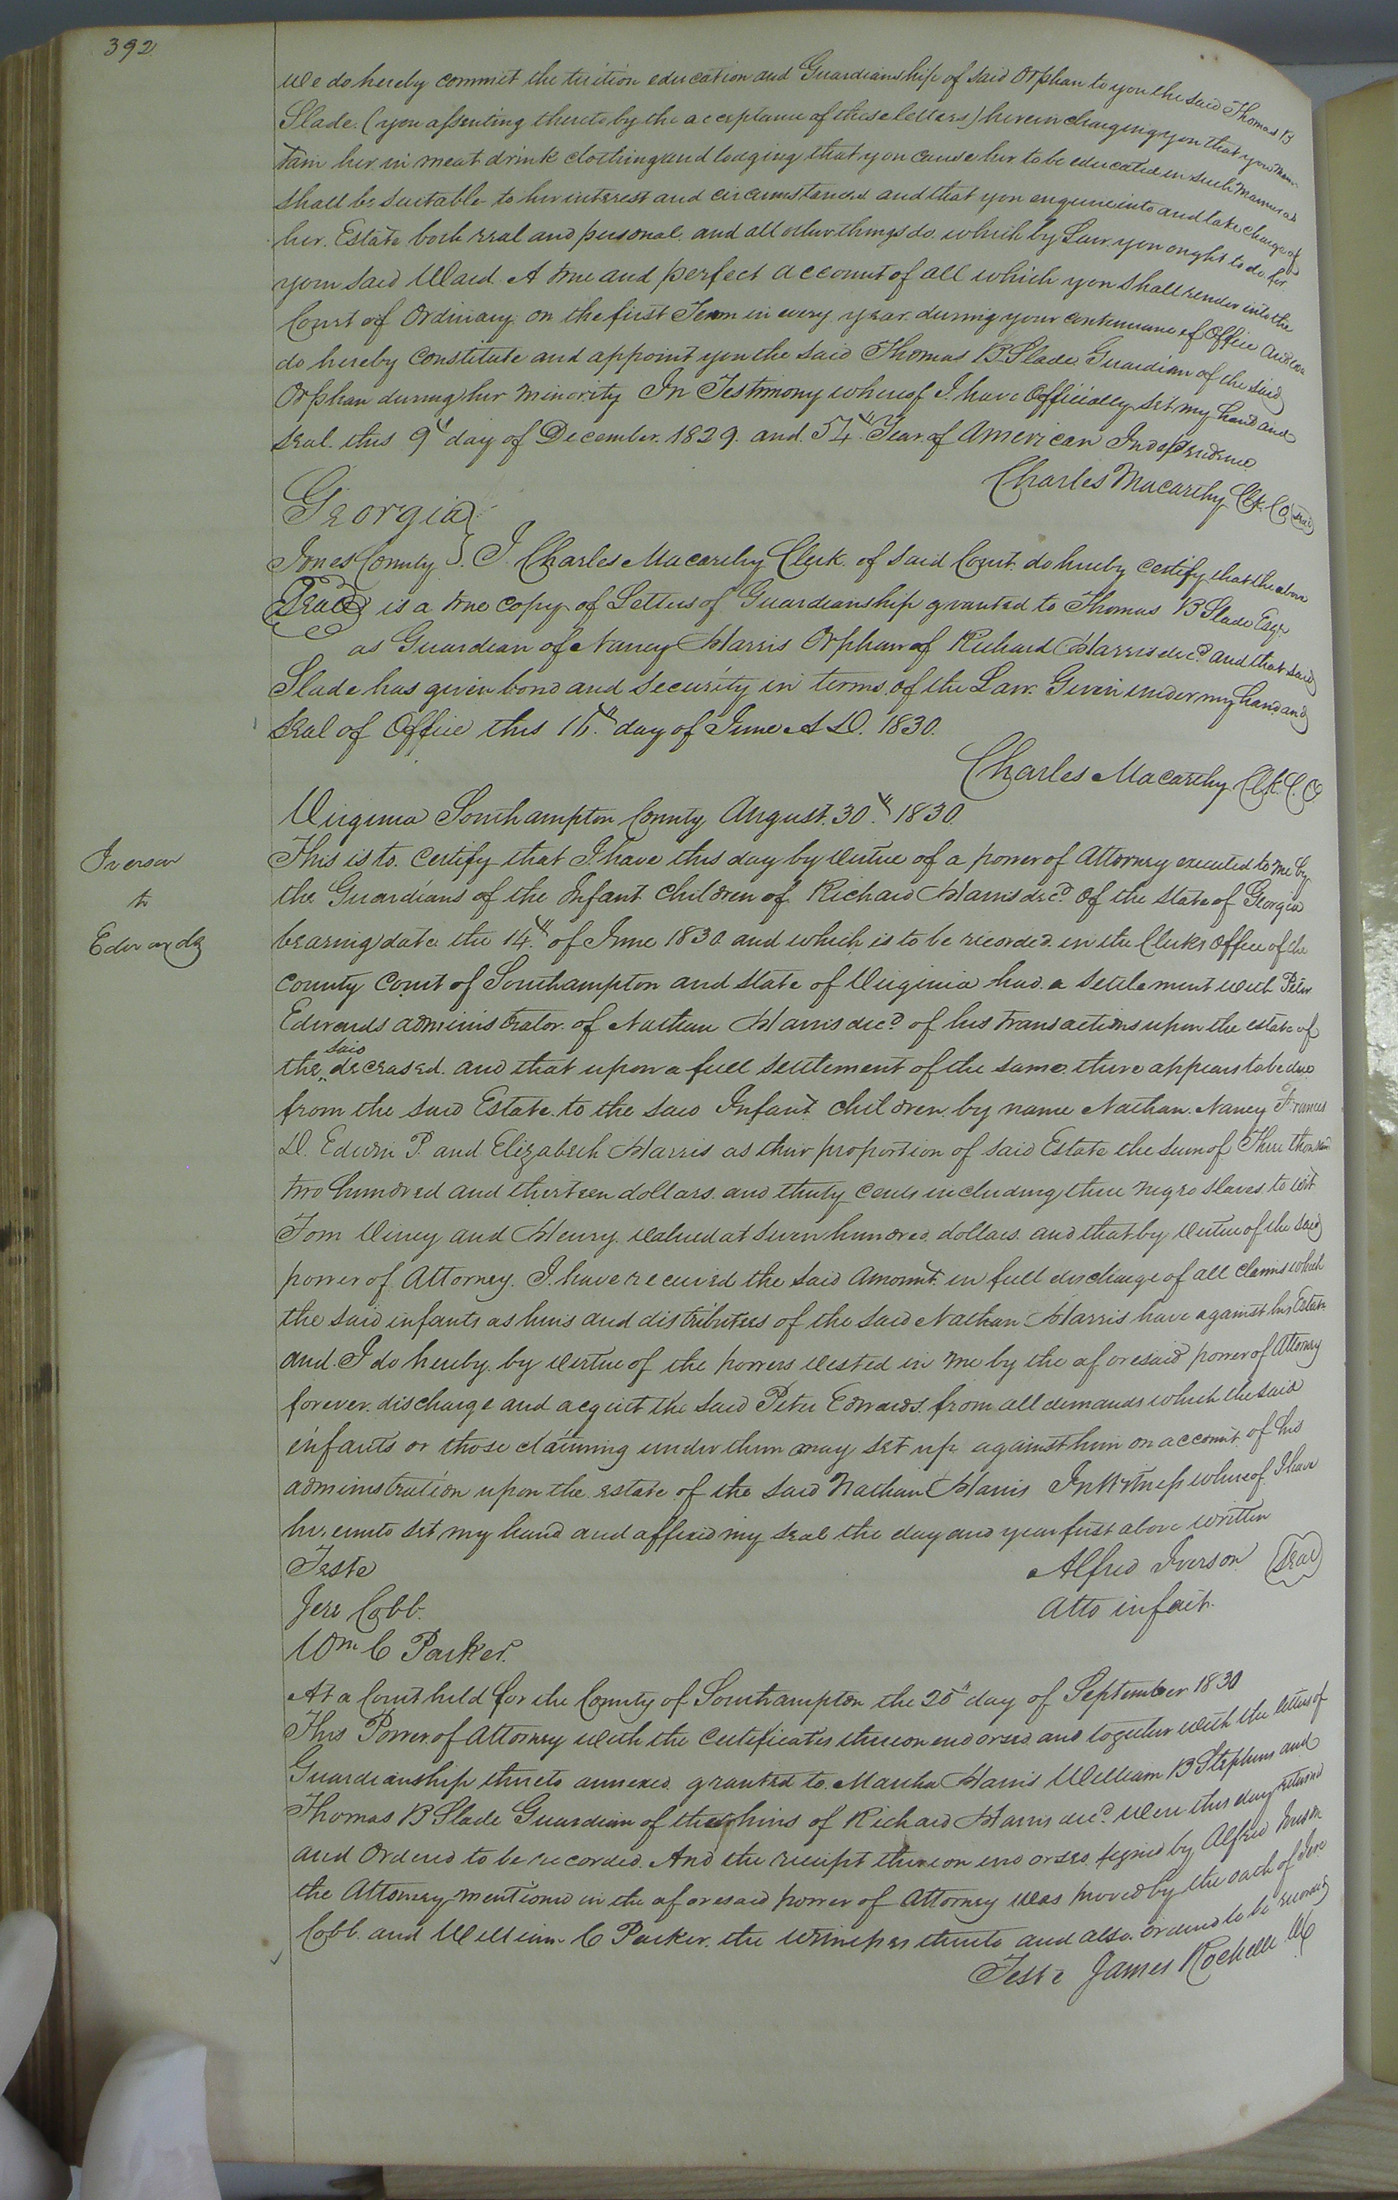 392
We do hereby commit the tuition education and Guardianship of said Orphan to you the said Thomas B
Slade. (you assenting thereto by the acceptance of these letters) herein charging you that you main-
tain her in meat drink clothing and lodging that you cause her to be educated in such manner as
shall be suitable to her interest and circumstances and that you enquire into and take charge of
her Estate both real and personal and all other things do which by Law you ought to do for
your said Ward A true and perfect account of all which you shall render into the
Court of Ordinary on the first Term in every year during your continuance of Office and we
do hereby constitute and appoint you the said Thomas B Slade Guardian of the said
Orphan during her minority In Testimony whereof I have Officially set my hand and
seal this 9th day of December 1829. and 54th Year of American Independence
Charles Macarthy Clk. C O (seal)
Georgia }
Jones County } I Charles Macarthy Clerk of said Court do hereby certify that the above
(Seal) is a true copy of Letters of Guardianship granted to Thomas B Slade Esqr
as Guardian of Nancy Harris Orphan of Richard Harris decd. and that said
Slade has given bond and security in terms of the Law. Given under my hand and
seal of Office this day of June A D. 1830.
Charles Macarthy Clk. C. O
Virginia Southampton County August. 30th 1830
Iverson
to
Edwards
This is to certify that I have this day by virtue of a power of Attorney executed to me by
the Guardians of the Infant children of Richard Harris decd. of the State of Georgia
bearing date the 14th of June 1830 and which is to be recorded in the Clerks Office of the
County Court of Southampton and State of Virginia had a settlement with Peter
Edwards administrator of Nathan Harris decd. of his transactions upon the estate of
the said deceased. and that upon a full settlement of the same there appears to be due
from the said Estate to the said Infant children by name Nathan. Nancy Frances
D. Edwin P. and Elizabeth Harris as their proportion of said Estate the sum of Three thousand
two hundred and thirteen dollars and thirty cents including three negro slaves to wit
Tom Viney and Henry valued at seven hundred dollars and that by virtue of the said
power of Attorney. I have received the said Amount in full discharge of all claims which
the said infants as heirs and distributees of the said Nathan Harris have against his Estate
and I do hereby by virtue of the powers vested in me by the aforesaid power of Attorney
forever discharge and acquit the said Peter Edwards from all demands which the said
infants or those claiming under them may set up against him on account of his
administration upon the estate of the said Nathan Harris In Witness whereof I have
hereunto set my hand and affixed my seal the day and year first above written
Teste
Alfred Iverson (Seal)
Jere Cobb.
Atto in fact.
Wm C Parker.
At a Court held for the County of Southampton the 20th day of September 1830
This Power of Attorney with the certificates thereon endorsed and together with the letters of
Guardianship thereto annexed granted to Martha Harris William B Stephens and
Thomas B Slade Guardian of the heirs of Richard Harris decd. were this day returned
and Ordered to be recorded. And the receipt thereon endorsed signed by Alfred Iverson
the Attorney mentioned in the aforesaid power of Attorney was proved by the oath of Jere
Cobb and William C Parker. the witnesses thereto and also ordered to be recorded
Teste James Rochelle